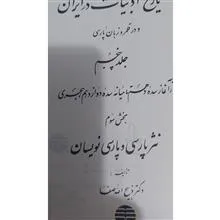 تاریخ ادبیات در ایران
و در قلمرو زبان پارسی
جلد پنجم
از آغاز سدهٔ دهم تا میانهٔ سدهٔ دوازدهم هجری
بخش سوم
نثر پارسی و پارسی نویسان
تألیف:
دکتر ذبیح الله صفا